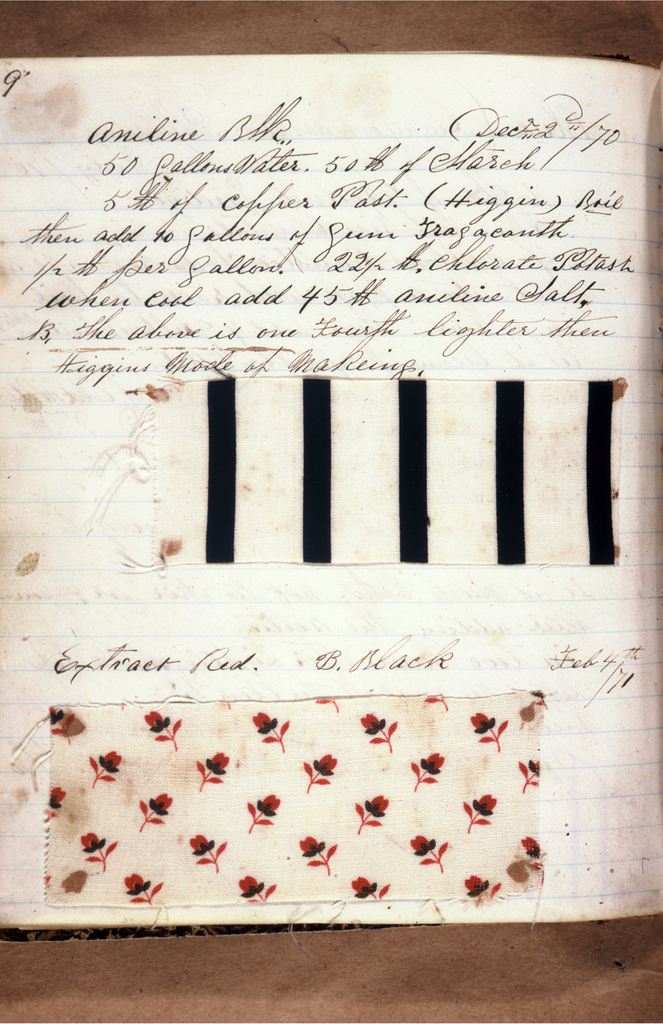 9
Aniline Blk. Dec 2d/70
50 Gallons Water. 50 lb of Starch
5 lb of copper Past. (Higgin) Boil
then add 10 Gallons of Gum Tragacanth
1/2 lb per Gallon. 22 1/2 lb. Chlorate Potash
when cool add 45 lb aniline Salt.
B, The above is one Fourth lighter then
Higgins Mode of Makeing.
Extract Red. B. Black Feb 4th/71